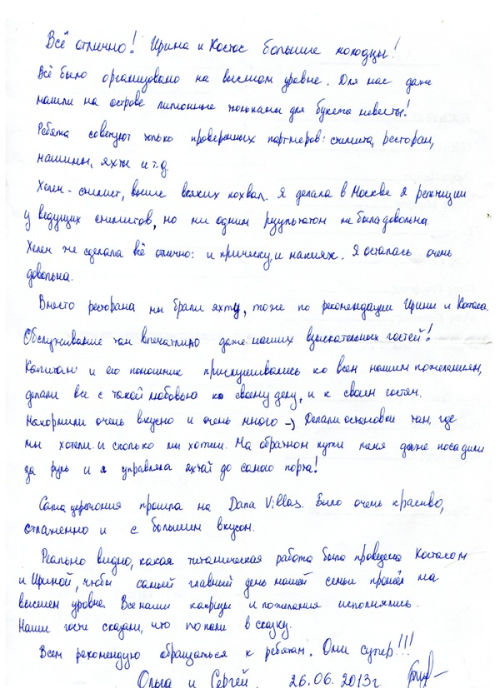 Всё отлично! Ирина и Костас большие молодцы!
Всё было организовано на высшем уровне. Для нас даже
нашли на острове пионы для букета невесты!
Ребята советуют только проверенных партнеров: стилиста, ресторан,
машины, яхты и т.д
Хелен - стилист, выше всяких похвал. Я делала в Москве 2 репетиции
у ведущих стилистов, но ни одним результатом не была довольна
Хелен же сделала всё отлично: и прическу, и макияж. Я осталась очень
довольна.
Вместо ресторана мы брали яхту, тоже по рекомендации Ирины и Костаса
Обслуживание там впечатлило даже наших взыскательных гостей!
Капитан и его помощник прислушивались ко всем нашим пожеланиям,
делали все с такой любовью ко своему делу, и к своим гостям.
Накормили очень вкусно и очень много -) Делали остановки там, где
мы хотели и сколько мы хотели. На обратном пути меня даже посадили
за руль и я управляла яхтой до самого порта!
Сама церемония прошла на Dana Villas. Было очень красиво,
слаженно и с большим вкусом.
Реально видно, какая титаническая работа была проведена Костасом
и Ириной, чтобы самый главный день нашей семьи прошёл на
высшем уровне. Все наши капризы и пожелания исполнялись.
Наши гости сказали, что попали в сказку.
Всем рекомендую обращаться к ребятам. Они супер!!!
Ольга и Сергей. 26.06.2013г